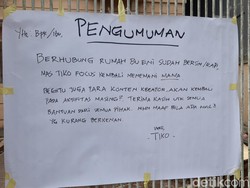 PENGUMUMAN
YTH. BPK/IBU.
BERHUBUNG RUMAH BU ENI SUDAH BERSIH/RAPI
MAS TIKO FOCUS KEMBALI MENEMANI MAMA
BEGITU JUGA PARA KONTEN KREATOR, AKAN KEMBALI
PADA AKTIFITAS MASING². TERIMA KASIH UTK SEGALA
BANTUAN DARI SEMUA PIHAK. MOHON MAAF BILA ADA
YG KURANG BERKENAN.
TIKO
detikcom